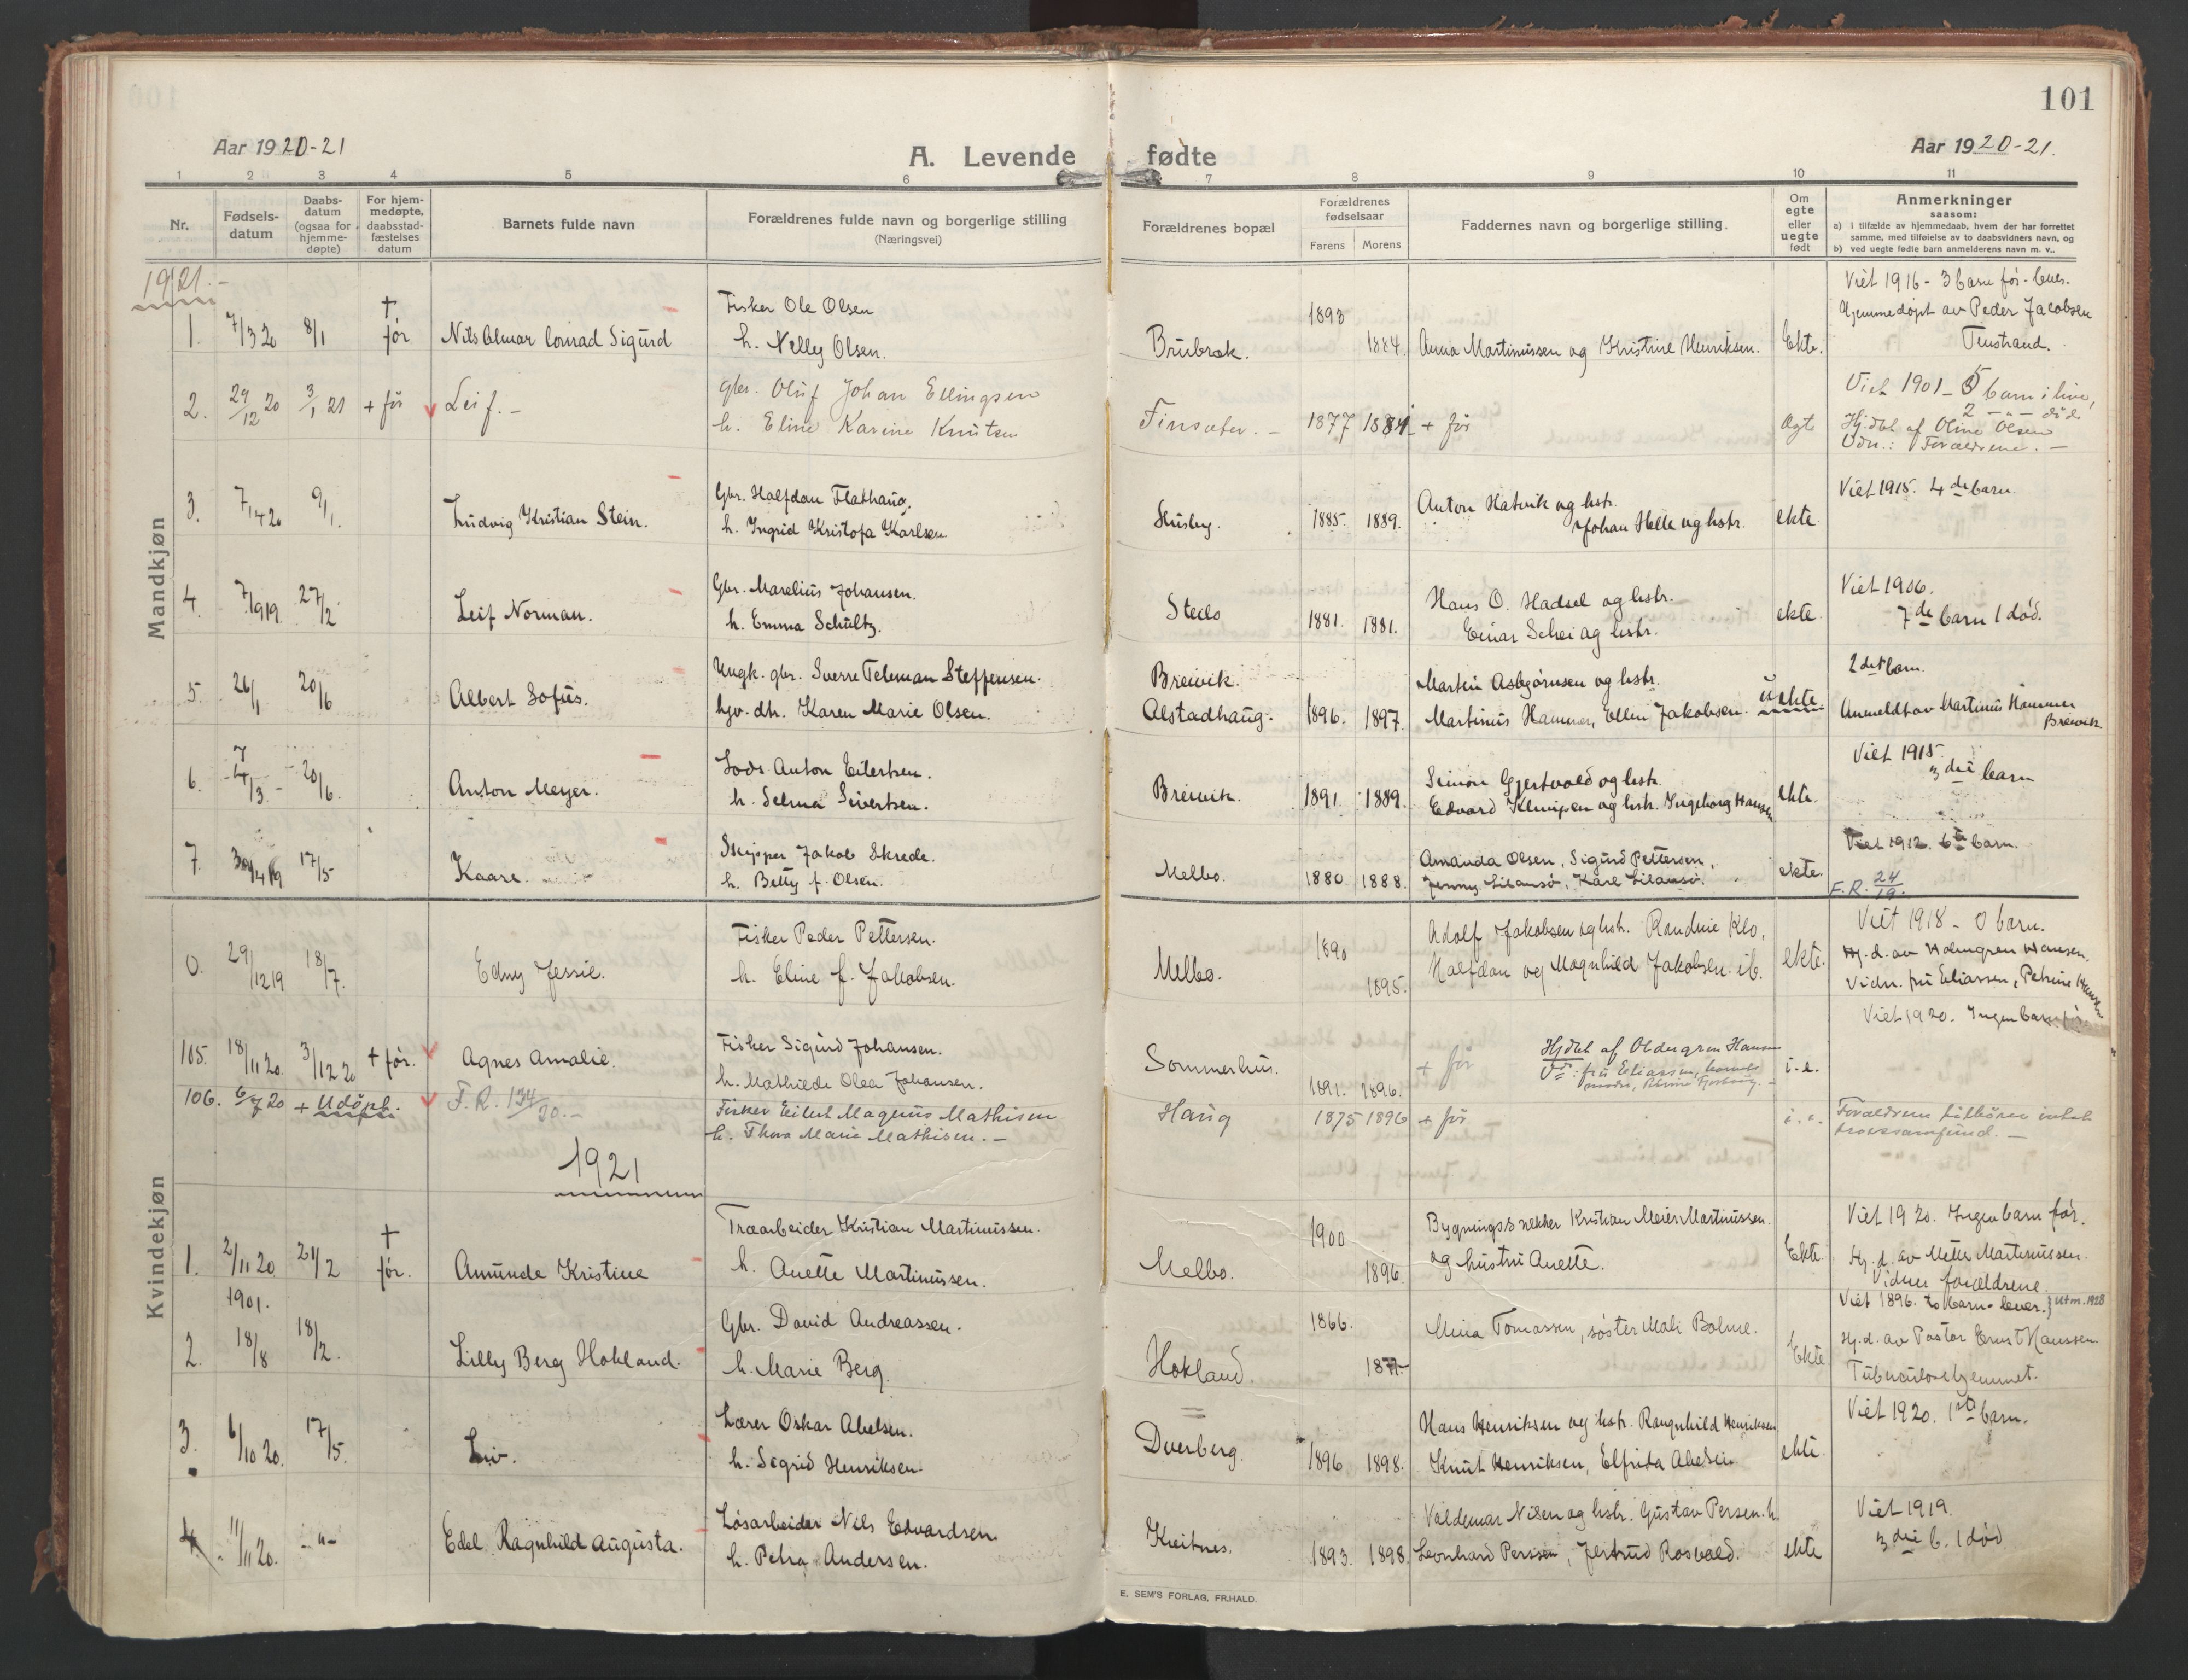 101
Aar 1920-21
A. Levende fødte
Aar 1920-21.
1 2 3 4 5 6 7 8 9 10 11
Nr.
Fødsels-
datum
Daabs-
datum
(ogsaa for
hjemme-
døpte)
For hjem-
medøpte,
daabsstad-
fæstelses
datum
Barnets fulde navn
Forældrenes fulde navn og borgerlige stilling
(Næringsvei)
Forældrenes bopæl
Forældrenes
fødselsaar
Farens Morens
Faddernes navn og borgerlige stilling.
Om
egte
eller
uegte
født
Anmerkninger
saasom:
a) i tilfælde av hjemmedaab, hvem der har forrettet
samme, med tilføielse av to daabsvidners navn, og
b) ved uegte fødte barn anmelderens navn m. v..
Mandkjøn
1921.-
Viet 1916 - 3 barn før - lever.
Fisker Ole Olsen 1893 Hjemmedøpt av Peder Jacobsen
1. 7/3 20 8/1 † før Nils Almar Conrad Sigurd h. Nelly Olsen. 1884. Anna Martinussen og Kristine Henriksen. Ekte. Tenstrand.
gbr. Oluf Johan Ellingsen Viet 1901 - 5 barn i live,
2 -"- døde
2. 29/12 20 3/1 21 + før Leif. - h. Eline Karine Knutsen Finsæter. - 1877 1884 + før Ægte Hj.dbt af Oline Olsen
Vdn.: Forældrene. -
Gbr. Halfdan Flathaug. Anton Hatvik og hstr. Viet 1915. 4de barn
3. 7/4 20 9/1. Ludvig Kristian Stein. h. Ingrid Kristofa Karlsen Husby. 1885. 1889. Johan Helle og hstr. ekte.
Gbr. Marelius Johansen. Hans O. Hadsel og hstr. Viet 1906.
4. 7/1919. 27/2. Leif Norman. h. Emma Schultz. Steilo 1881. 1881. Einar Schei og hstr. ekte. 7de barn 1 død.
Ungk. gbr. Sverre Teleman Steffensen. Breivik. Martin Asbjørnsen og hstr. 2det barn.
5. 26/1 20/6 Albert Sofus. hjv. dtr. Karen Marie Olsen. Alstadhaug. 1896. 1897. Martinus Hammer, Ellen Jakobsen. uekte Anmeldt av Martinus Hammer
Breivik
Lods Anton Eilertsen. Viet 1915.
6. 7/3. - 20/6. Anton Meyer. h. Selma Sivertsen. Breivik. 1891. 1889. Simon Gjertvold og hstr. ekte. 3die barn
Edvard Klemipsen og hstr. Ingeborg Hansen
Skipper Jakob Skrede. Amanda Olsen, Sigurd Pettersen, Viet 1912. 6te barn.
7. 30/4 19 17/5 Kaare. h. Betty f. Olsen. Melbo. 1880. 1888. Jenny Lilansø, Karl Lilansø. ekte. F. R. 24/19.
Kvindekjøn
Fisker Peder Pettersen. 1890 Adolf Jakobsen og hstr. Randine Klo, Viet 1918 - 0 barn.
0. 29/12 19 18/7. Edny Jessie. h. Eline f. Jakobsen. Melbo. 1895. Halfdan og Magnhild Jakobsen. ib. ekte. Hj. d. av Holmgren Hansen.
Vidn. fru Eliassen, Petrine Hansen
Viet 1920. Ingen barn før
105. 18/11 20. 3/12 20 + før. Agnes Amalie. Fisker Sigurd Johansen. Sommerhus. + før Hjdbt af Oldngren Hansen i. e.
h. Mathilde Olea Johansen. 1891. 1896. Vd: fru Eliassen,
106. 6/7 20 + Udøpt. F. R. 134/20. - Fisker Eilert Magnus Mathisen Haug 1875 1896 + før i. e. Forældrene tilhører intet
h. Thora Marie Mathisen. - trossamfund. -
1921
Træarbeider Kristian Martinussen. 1900 Bygningssnekker Kristian Meier Martinussen. Viet 1920. Ingen barn før.
1. 2/11 20 21/2 † før. Amunde Kristine h. Anette Martinussen. Melbo. 1896. og hustru Anette. Ekte. Hj. d. av Mette Martinussen.
Vidner forældrene.
1901. Gbr. David Andreassen. 1866. Mina Tomassen, søster Mali Bolme. Viet 1896. to barn - lever. } Utm. 1928
2. 18/8 18/2. Lilly Berg Hokland. h. Marie Berg. Hokland. 1877 Ekte Hj. d. av Pastor Ernst Hanssen.
Tuberkulosehjemmet.
Lærer Oskar Abelsen. Hans Henriksen og hstr. Rangnhild Henriksen Viet 1920. 1ste barn.
3. 6/10 20. 17/5. Liv. h. Sigrid Henriksen. Dverberg. 1896 1898. Knut Henriksen, Elfrida Abelsen. ekte.
Løsarbeider Nils Edvardsen. Valdemar Nilsen og hstr. Gustav Persen. h. Viet 1919.
4. 11/11 20. -"- Edel Ragnhild Augusta. h. Petra Andersen. Kreitnes. 1893. 1898. Leonhard Perssen, Jertrud Rosvold. ekte 3die b. 1 død
E. SEM'S FORLAG, FR.HALD.